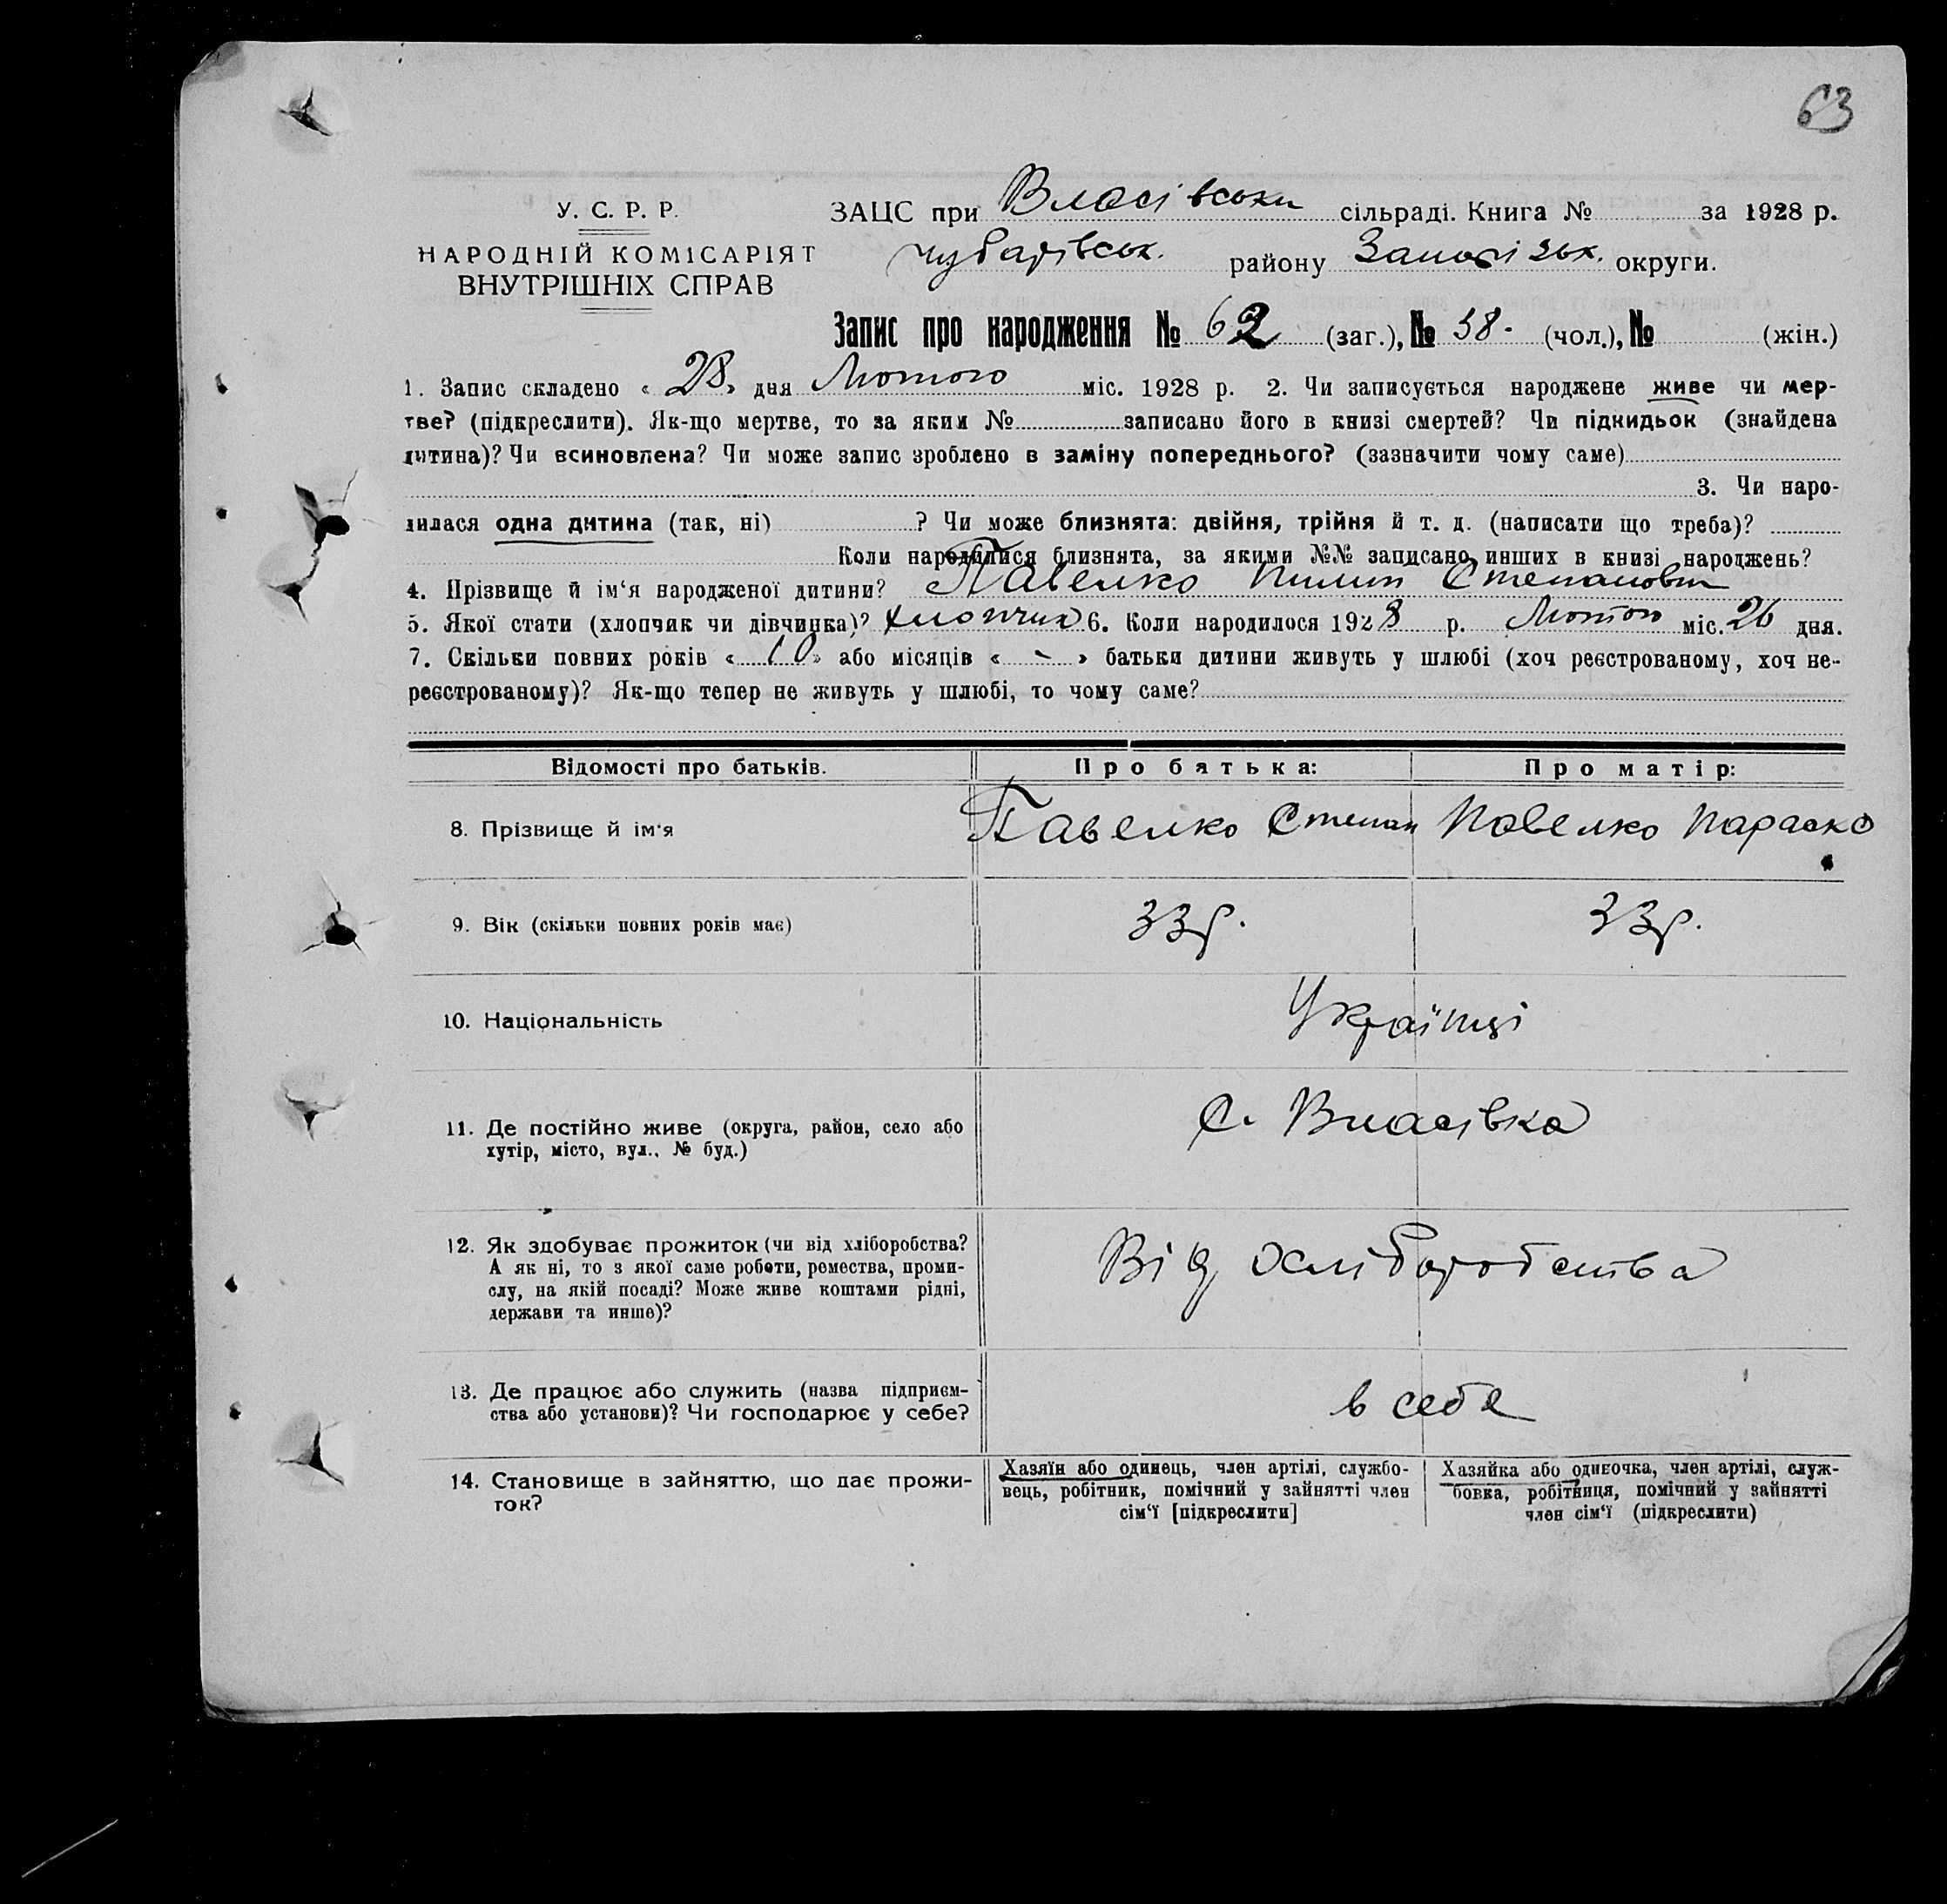 63
У. С. Р. Р.
НАРОДНІЙ КОМІСАРІЯТ
ВНУТРІШНІХ СПРАВ
ЗАЦС при Власівськи сільраді. Книга № за 1928 р.
Чубарівськ. району Запорізьк. округи.
Запис про народження № 62 (заг.), № 38 - (чол.), № (жін.)
1. Запис складено « 28 » дня Лютого міс. 1928 р. 2. Чи записується народжене живе чи мер-
тве? (підкреслити). Як-що мертве, то за яким № записано його в книзі смертей? Чи підкидьок (знайдена
дитина)? Чи всиновлена? Чи може запис зроблено в заміну попереднього? (зазначити чому саме)
3. Чи наро-
дилася одна дитина (так, ні) ? Чи може близнята: двійня, трійня й т. д. (написати що треба)?
Коли народилися близнята, за якими №№ записано инших в книзі народжень?
4. Прізвище й ім‘я народженої дитини? Павелко Пилип Степанович
5. Якої стати (хлопчик чи дівчинка)? хлопчик 6. Коли народилося 1928 р. Лютого міс. 26 дня.
7. Скільки повних років « 10 » або місяців « - » батьки дитини живуть у шлюбі (хоч реєстрованому, хоч не-
реєстрованому)? Як-що тепер не живуть у шлюбі, то чому саме?
Відомості про батьків. Про батька: Про матір:
8. Прізвище й ім‘я Павелко Степан Павелко Параска
9. Вік (скільки повних років має) 33 р. 33 р.
10. Національність Українці
11. Де постійно живе (округа, район, село або
хутір, місто, вул., № буд.)
с. Власівка
12. Як здобуває прожиток (чи від хліборобства?
А як ні, то з якої саме роботи, ремества, проми-
слу, на якій посаді? Може живе коштами рідні,
держави та инше)?
Від хліборобства
13. Де працює або служить (назва підприєм-
ства або установи)? Чи господарює у себе?
в себе
14. Становище в зайняттю, що дає прожи-
ток?
Хазяїн або одинець, член артілі, службо-
вець, робітник, помічний у зайнятті член
сім‘ї [підкреслити]
Хазяйка або одиночка, член артілі, служ-
бовка, робітниця, помічний у зайнятті
член сім‘ї (підкреслити)